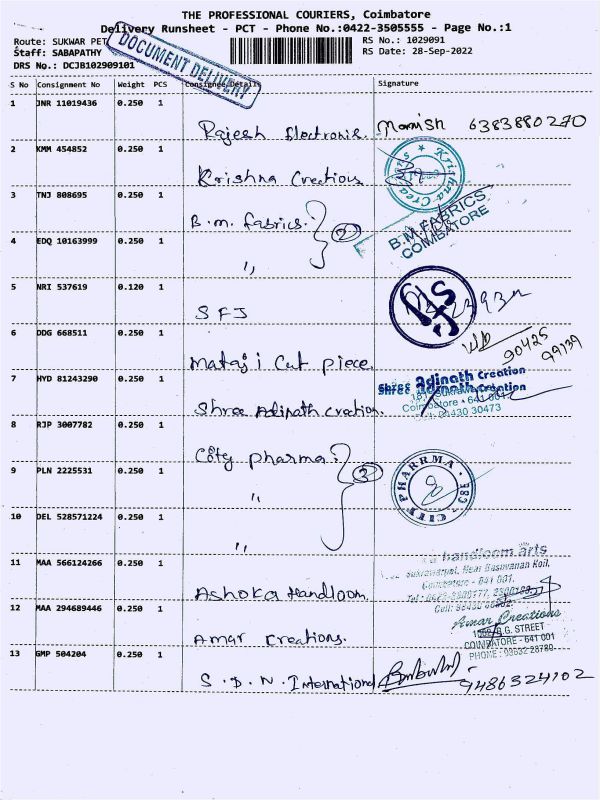 THE PROFESSIONAL COURIERS, Coimbatore
Delivery Runsheet - PCT - Phone No.:0422-3505555 - Page No.:1
Route: SUKWAR PET
RS No.: 1029091
Staff: SABAPATHY
RS Date: 28-Sep-2022
DRS No.: DCJB102909101
DOCUMENT DELIVERY
S No Consignment No Weight PCS Consignee Details Signature
1 JNR 11019436 0.250 1
Rajesh Electronic. Manish 6383880270
2 KMM 454852 0.250 1
Krishna Creations
3 TNJ 808695 0.250 1
B.M. Fabrics.
B.M.FABRICS
COIMBATORE
4 EDQ 10163999 0.250 1
"
5 NRI 537619 0.120 1
SFJ
6 DDG 668511 0.250 1
90425
99139
Mataji Cut piece
7 HYD 81243290 0.250 1
Shree Adinath Creation
Coimbatore - 641 001
Shree Adinath creation.
8 RJP 3007782 0.250 1
City pharma.
CITY PHARRMA CBE
9 PLN 2225531 0.250 1
"
10 DEL 528571224 0.250 1
"
11 MAA 566124266 0.250 1
handloom arts
Coimbatore - 641 001.
Ashoka Handloom
12 MAA 294689446 0.250 1
Amar Creations
R.G. STREET
COIMBATORE - 641 001
PHONE : 98632 28789
Amar Creations.
13 GMP 504204 0.250 1
S.D.N. International 9486324102